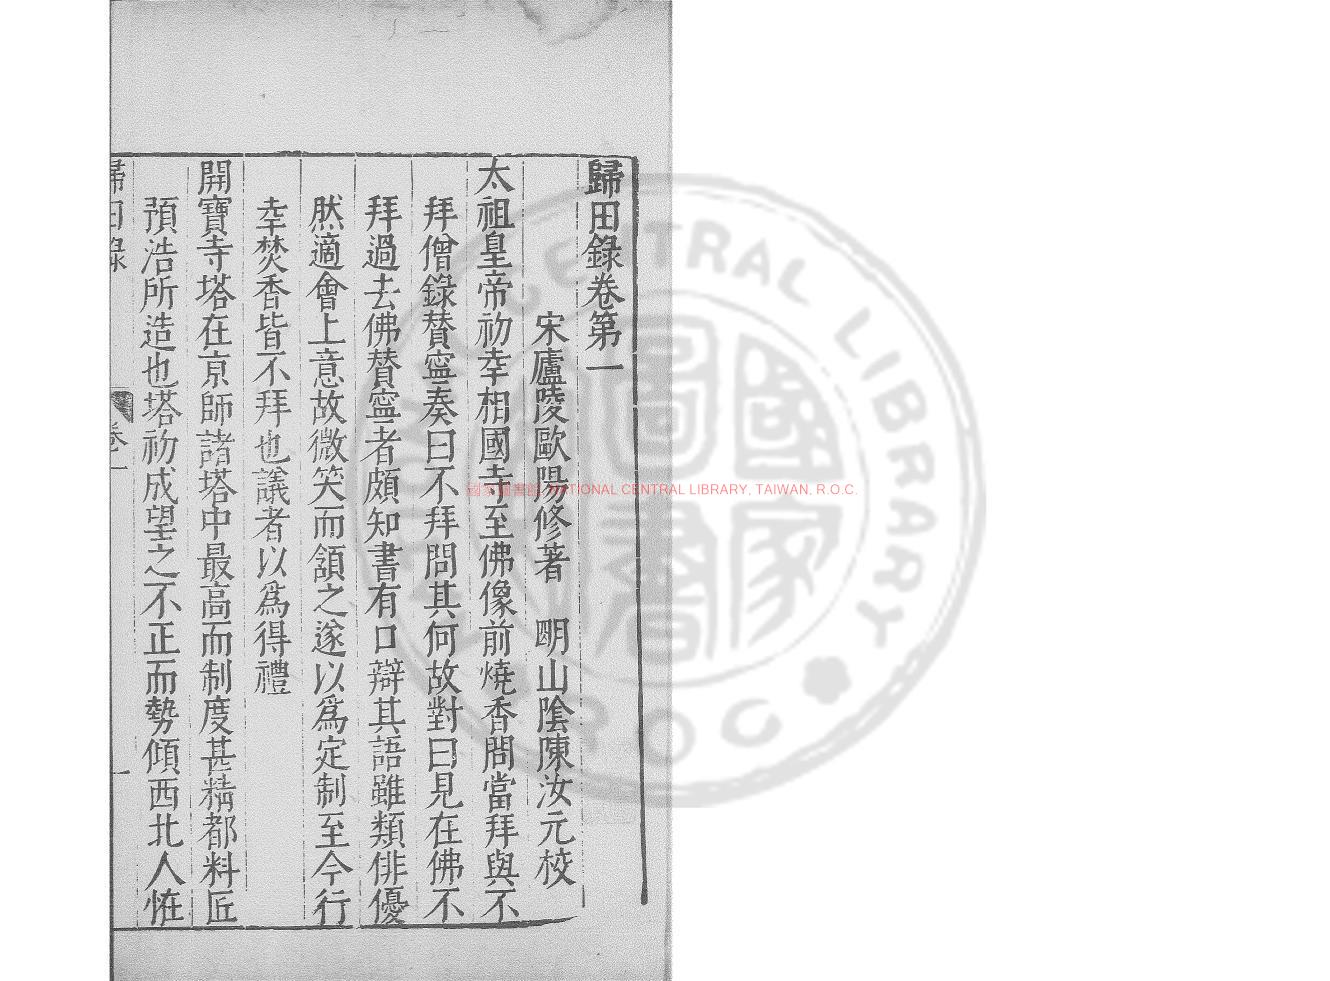 歸田錄卷第一
宋廬陵歐陽修著　明山陰陳汝元校
太祖皇帝初幸相國寺至佛像前燒香問當拜與不
拜僧錄賛寧奏曰不拜問其何故對曰見在佛不
拜過去佛賛寧者頗知書有口辯其語雖類俳優
然適會上意故微笑而頷之遂以爲定制至今行
幸焚香皆不拜也議者以爲得禮
開寶寺塔在京師諸塔中最高而制度甚精都料匠
預浩所造也塔初成望之不正而勢傾西北人怪
歸田錄　卷一　一
國家圖書館, NATIONAL CENTRAL LIBRARY, TAIWAN, R.O.C.
NATIONAL CENTRAL LIBRARY ROC
國家圖書